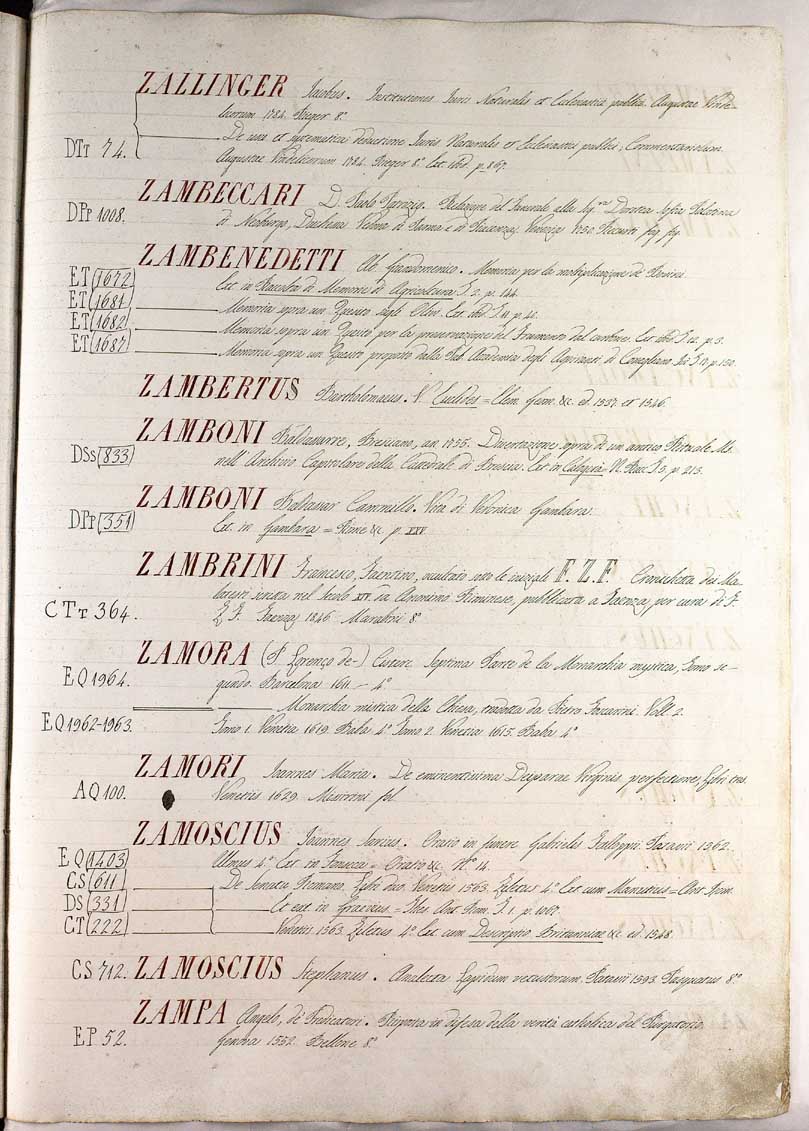 ZALLINGER Jacobus. Institutiones Juris Naturalis et Ecclesiastici publici. Augustae Vinde-
licorum 1784. Rieger 8.°
DTt 74. De usu et systematica deductione Juris Naturalis et Ecclesiastici publici, Commentariolum.
Augustae Vindelicorum 1784. Rieger 8.° Ext. ibid. p. 267.
ZAMBECCARI D. Paolo Patrizio. Relazione del Funerale alla Dorotea Sofia Palatina
DPp 1008. di Neoburgo, Duchessa Vedova di Parma e di Piacenza. Venezia 1750. Recurti fig. fig.
ZAMBENEDETTI Ab. Giandomenico. Memoria per la moltiplicazione de' Bovini.
ET 1672 Ext. in Raccolta di Memorie di Agricoltura T. 2. p. 144.
ET 1681 Memoria sopra un Quesito degli Olivi. Ext. ibid. T. 11. p. 41.
ET 1682 Memoria sopra un Quesito per la preservazione del Frumento dal carbone. Ext. ibid. T. 12. p. 3.
ET 1687 Memoria sopra un Quesito proposto dalla Pub. Academia degli Aspiranti di Conegliano. Ivi T. 17. p. 150.
ZAMBERTUS Bartholomaeus. V. Euclides = Elem. Geom. &c. ed. 1537. et 1546.
ZAMBONI Baldassarre, Bresciano, an. 1755. Dissertazione sopra di un antico Rituale Ms.
DSs 833 nell'Archivio Capitolare della Cattedrale di Brescia. Ext. in Calogerà N. Rac. T. 3. p. 213.
ZAMBONI Baldassar Cammillo. Vita di Veronica Gambara.
DPp 351 Ext. in Gambara = Rime &c. p. XXV.
ZAMBRINI Francesco, Faentino, occultato sotto le iniziali F. Z. F. Cronichetta dei Ma-
latesti scritta nel Secolo XIV. da Anonimo Riminese, pubblicata a Faenza, per cura di F.
CTt 364. Z. F. Faenza 1846. Marabini 8.°
ZAMORA (F. Lorenço de-) Cisterc. Septima Parte de la Monarchia mystica, Tomo se-
EQ 1964. gundo. Barcelona 1611. - 4.°
Monarchia mistica della Chiesa, tradotta da Pietro Foscarini. Voll. 2.
EQ 1962-1963. Tomo 1. Venetia 1619. Baba 4.° Tomo 2. Venetia 1615. Baba 4.°
ZAMORI Joannes Maria. De eminentissima Deiparae Virginis perfectione, Libri tres.
AQ 100. Venetiis 1629. fol.
ZAMOSCIUS Joannes Sarius. Oratio in funere Gabrielis Falloppii. Patavii 1562.
EQ 1403 Ulmus 4.° Ext. in Fonseca = Oratio &c. N.° 14.
CS 611 De Senatu Romano. Libri duo. Venetiis 1563. Ziletus 4.° Ext. cum Manutius = Ant. Rom.
DS 331 Et ext. in Graevius = Thes. Ant. Rom. T. 1. p. 1067.
CT 222 Venetiis 1563. Ziletus 4.° Ext. cum Descriptio Britanniae &c. ed. 1548.
CS 712. ZAMOSCIUS Stephanus. Analecta Lapidum vetustorum. Patavii 1593. Pasquatus 8.°
ZAMPA Angelo, de' Predicatori. Risposta in difesa della verità cattolica del Purgatorio.
EP 52. Genova 1552. Bellone 8.°